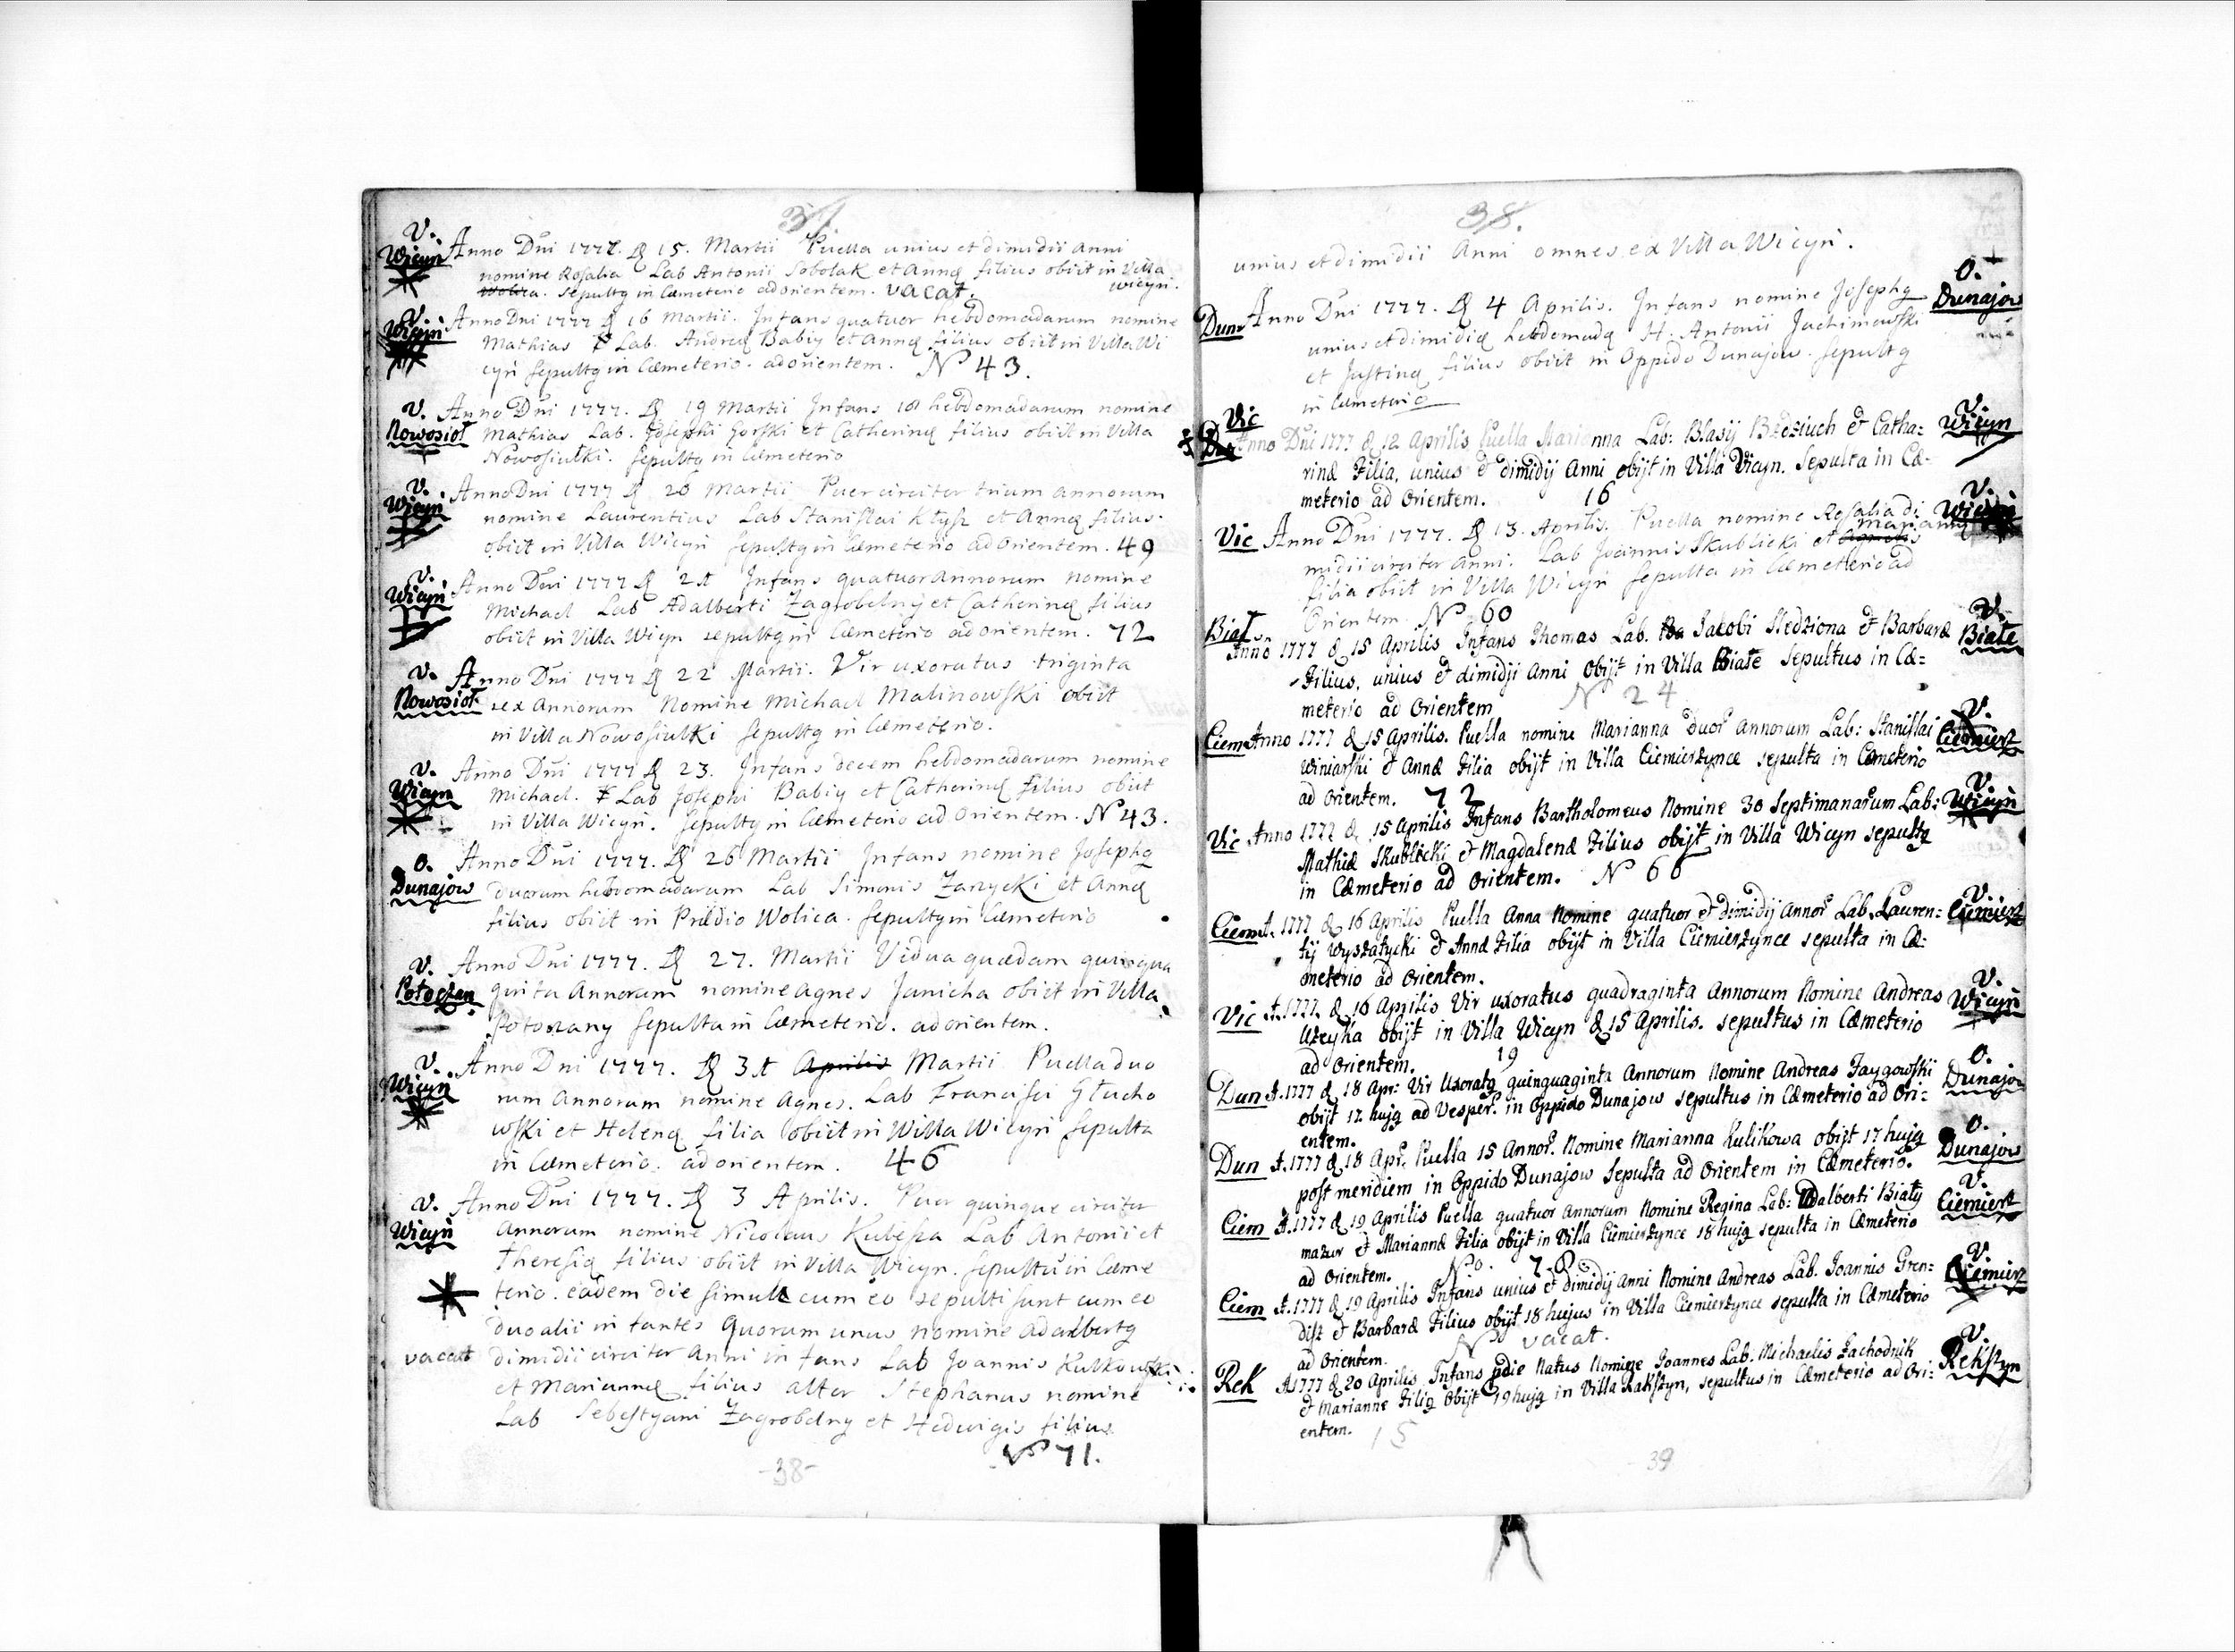 37
V.
Wicyń Anno Dni 1777. D 15. Martii Puella unius et dimidii anni
nomine Rosalia Lab Antonii Sobolak et Annæ filius obiit in Villa
Wolica. sepultq in Cæmeterio ad orientem. vacat. wicyn.
V.
Wicyń Anno Dni 1777 D 16 Martii. Infans quatuor hebdomadarum nomine
Mathias Lab. Andreæ Babiy et Annæ filius obiit in Villa Wi
cyń sepultq in Cæmeterio. ad orientem. N 43.
V. Anno Dni 1777. D 19 Martii Infans 18 hebdomadarum nomine
Nowosioł Mathias Lab. Josephi Gorski et Catherinæ filius obiit in Villa
Nowosiulki. Sepultq in Cæmeterio
V. Anno Dni 1777 D 20 Martii Puer circiter trium annorum
Wicyń nomine Laurentius Lab Stanislai Kłysz et Annæ filius.
obiit in Villa Wicyń sepultq in Cæmeterio ad orientem. 49
V. Anno Dni 1777 D 21 Infans quatuor annorum nomine
Wicyń Michael Lab Adalberti Zagrobelny et Catherinæ filius
obiit in Villa Wicyn sepultq in Cæmeterio ad orientem. 72
V. Anno Dni 1777 D 22 Martii. Vir uxoratus triginta
Nowosioł sex Annorum Nomine Michael Malinowski obiit
in Villa Nowosiulki sepultq in Cæmeterio.
V. Anno Dni 1777 D 23. Infans decem hebdomadarum nomine
Wicyn Michael. Lab Josephi Babiy et Catherinæ filius obiit
in Villa Wicyń. Sepultq in Cæmeterio ad orientem. N 43.
O. Anno Dni 1777. D 26 Martii Infans nomine Josephq
Dunajow duorum hebdomadarum Lab Simonis Zarycki et Annæ
filius obiit in Prædio Wolica. Sepultq in Cæmeterio
V. Anno Dni 1777. D 27. Martii Vidua quædam quinqua
Potoczan ginta Annorum nomine Agnes Janicha obiit in Villa
Potoczany sepulta in Cæmeterio. ad orientem.
V. Anno Dni 1777. D 31 Aprilis Martii Puella duo
Wicyn rum Annorum nomine Agnes. Lab Francisci Głucho
wski et Helenæ filia obiit in Villa Wicyń sepulta
in Cæmeterio. ad orientem. 46
V. Anno Dni 1777. D 3 Aprilis. Puer quinque circiter
Wicyń Annorum nomine Nicolaus Kubisza Lab Antonii et
Theresiæ filius obiit in Villa Wicyn. Sepultu in Cæme
terio. eadem die simul cum eo sepulti sunt cum eo
duo alii infantes Quorum unus nomine Adalbertq
vacat dimidii circiter Anni infans Lab Joannis Kulkowski
et Mariannæ filius alter Stephanus nomine
Lab Sebestyani Zagrobelny et Hedwigis filius
N 71.
-38-
38.
unius et dimidii Anni omnes ex Villa Wicyń.
Dun Anno Dni 1777. D 4 Aprilis. Infans nomine Josephq O. Dunajow
unius et dimidiæ hebdomadæ H. Antonii Jachimowski
et Justinæ filius obiit in Oppido Dunajow. sepultq
in Cæmeterio
Vic V.
Dun Anno Dni 1777 D 12 Aprilis Puella Marianna Lab: Blasij Bzdziuch & Catha: Wicyn
rinæ Filia, unius & dimidij Anni obijt in Villa Vicyn. Sepulta in Cæ-
meterio ad Orientem. 16
Vic Anno Dni 1777. D 13. Aprilis. Puella nomine Rosalia di V. Wicyń
midii circiter Anni. Lab Joannis Skublicki et Agnetis Mariannæ
filia obiit in Villa Wicyń sepulta in Cæmeterio ad
Orientem. N 60
Biał Anno 1777 D 15 Aprilis Infans Thomas Lab. Jacobi Niedziona & Barbaræ V. Białe
Filius, unius & dimidji Anni Obijt in Villa Białe Sepultus in Cæ=
meterio ad Orientem N 24
Ciem Anno 1777 D 15 Aprilis. Puella nomine Marianna duor Annorum Lab: Stanislai V. Ciemierz
Winiarski & Annæ Filia obijt in Villa Ciemierzynce sepulta in Cæmeterio
ad Orientem. 72
Vic Anno 1777 D 15 Aprilis Infans Bartholomeus Nomine 30 Septimanarum Lab: V. Wicyń
Mathiæ Skublicki & Magdalenæ Filius obijt in Villa Wicyn sepultq
in Cæmeterio ad Orientem. N 66
Ciem A. 1777 D 16 Aprilis Puella Anna Nomine quatuor & dimidij Annor Lab. Lauren= V. Ciemierz
tij Wyszatycki & Annæ Filia obijt in Villa Ciemierzynce sepulta in Cæ-
meterio ad Orientem.
Vic A. 1777. D 16 Aprilis Vir uxoratus quadraginta Annorum Nomine Andreas V. Wicyń
Uzeyka obijt in Villa Wicyn D 15 Aprilis. sepultus in Cæmeterio
ad Orientem. 19
Dun A. 1777 D 18 Apr: Vir Uxoratq quinquaginta Annorum Nomine Andreas Jaygowski O. Dunajow
obijt 17 hujq ad Vesper. in Oppido Dunajow sepultus in Cæmeterio ad Ori=
entem.
Dun A. 1777 D 18 Apr. Puella 15 Annor. Nomine Marianna Kulikowa obijt 17 hujq O. Dunajow
post meridiem in Oppido Dunajow Sepulta ad Orientem in Cæmeterio.
Ciem A. 1777 D 19 Aprilis Puella quatuor Annorum Nomine Regina Lab: Adalberti Biały V. Ciemierz
mazur & Mariannæ Filia obijt in Villa Ciemierzynce 18 hujq sepulta in Cæmeterio
ad Orientem. No. 78
Ciem A. 1777 D 19 Aprilis Infans unius & dimidij Anni Nomine Andreas Lab. Joannis Gren= V. Ciemierz
disz & Barbaræ Filius obijt 18 hujus in Villa Ciemierzynce sepulta in Cæmeterio
ad Orientem. N vacat.
Rek A 1777 D 20 Aprilis Infans pdie Natus Nomine Joannes Lab. Michaelis Zachodnik V. Rekszyn
& Marianne Filiq Obijt 19 hujq in Villa Rakszyn, sepultus in Cæmeterio ad Ori=
entem. 15
39